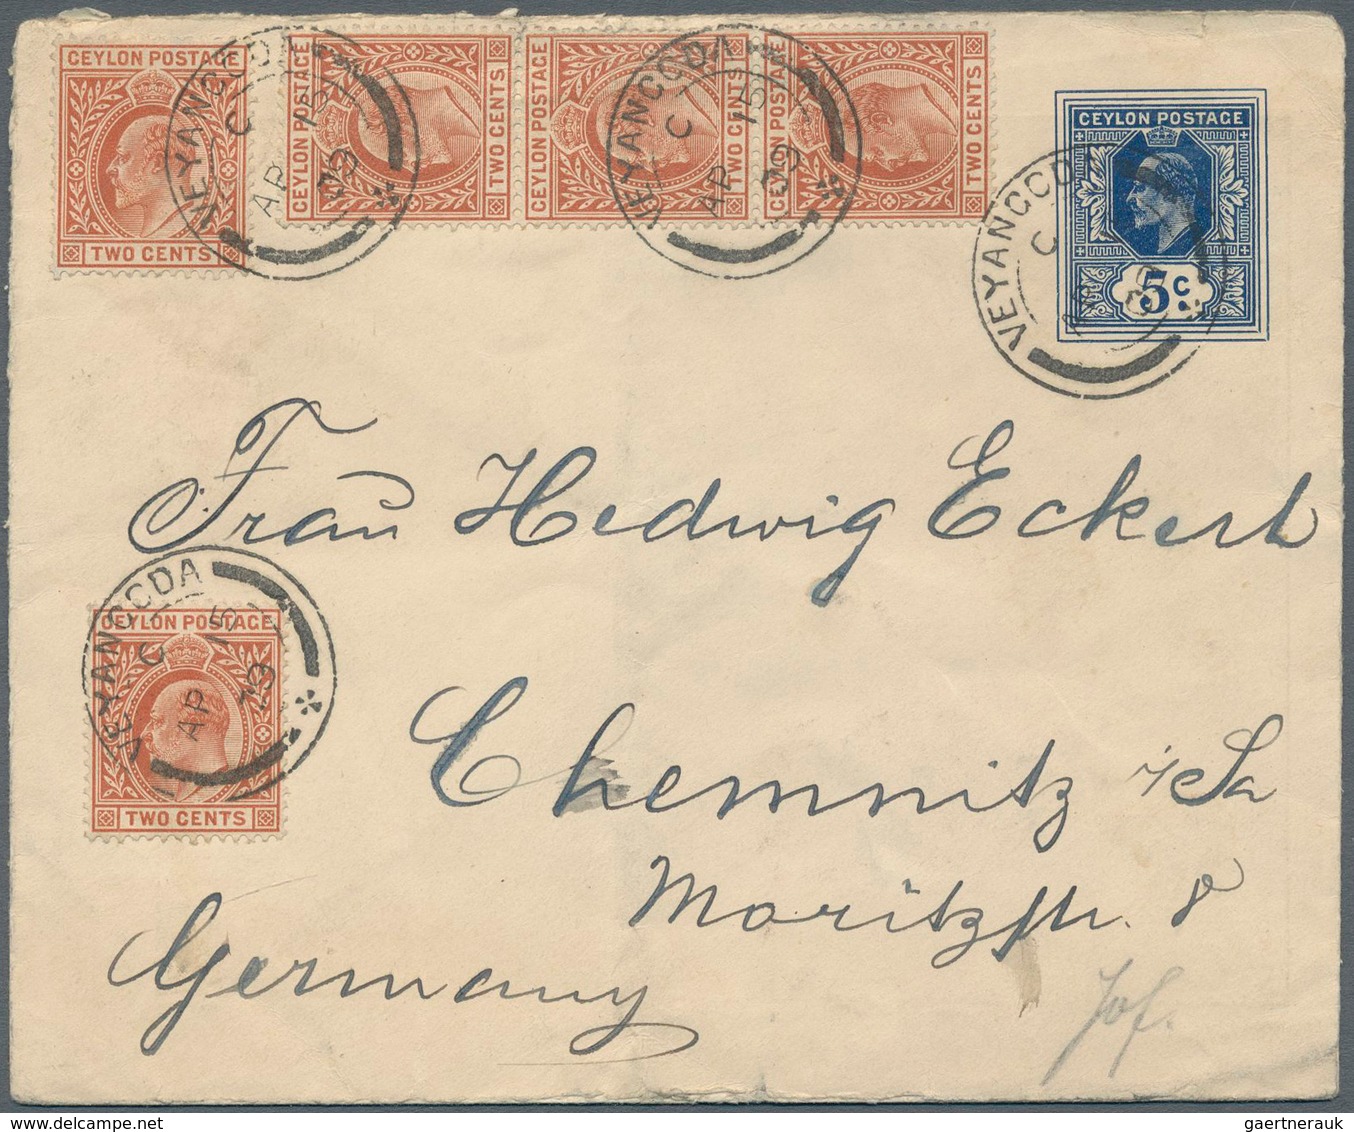 CEYLON POSTAGE
TWO CENTS
CEYLON POSTAGE
TWO CENTS
CEYLON POSTAGE
TWO CENTS
CEYLON POSTAGE
TWO CENTS
CEYLON POSTAGE
5c.
VEYANGODA
C
AP 15
09
VEYANGODA
C
AP 15
09
VEYANGODA
C
Frau Hedwig Eckert
CEYLON POSTAGE
TWO CENTS
VEYANGODA
C
AP 15
09
Chemnitz i/Sa
Moritzstr. 8
Germany
delcampe.net
gaertnerauk